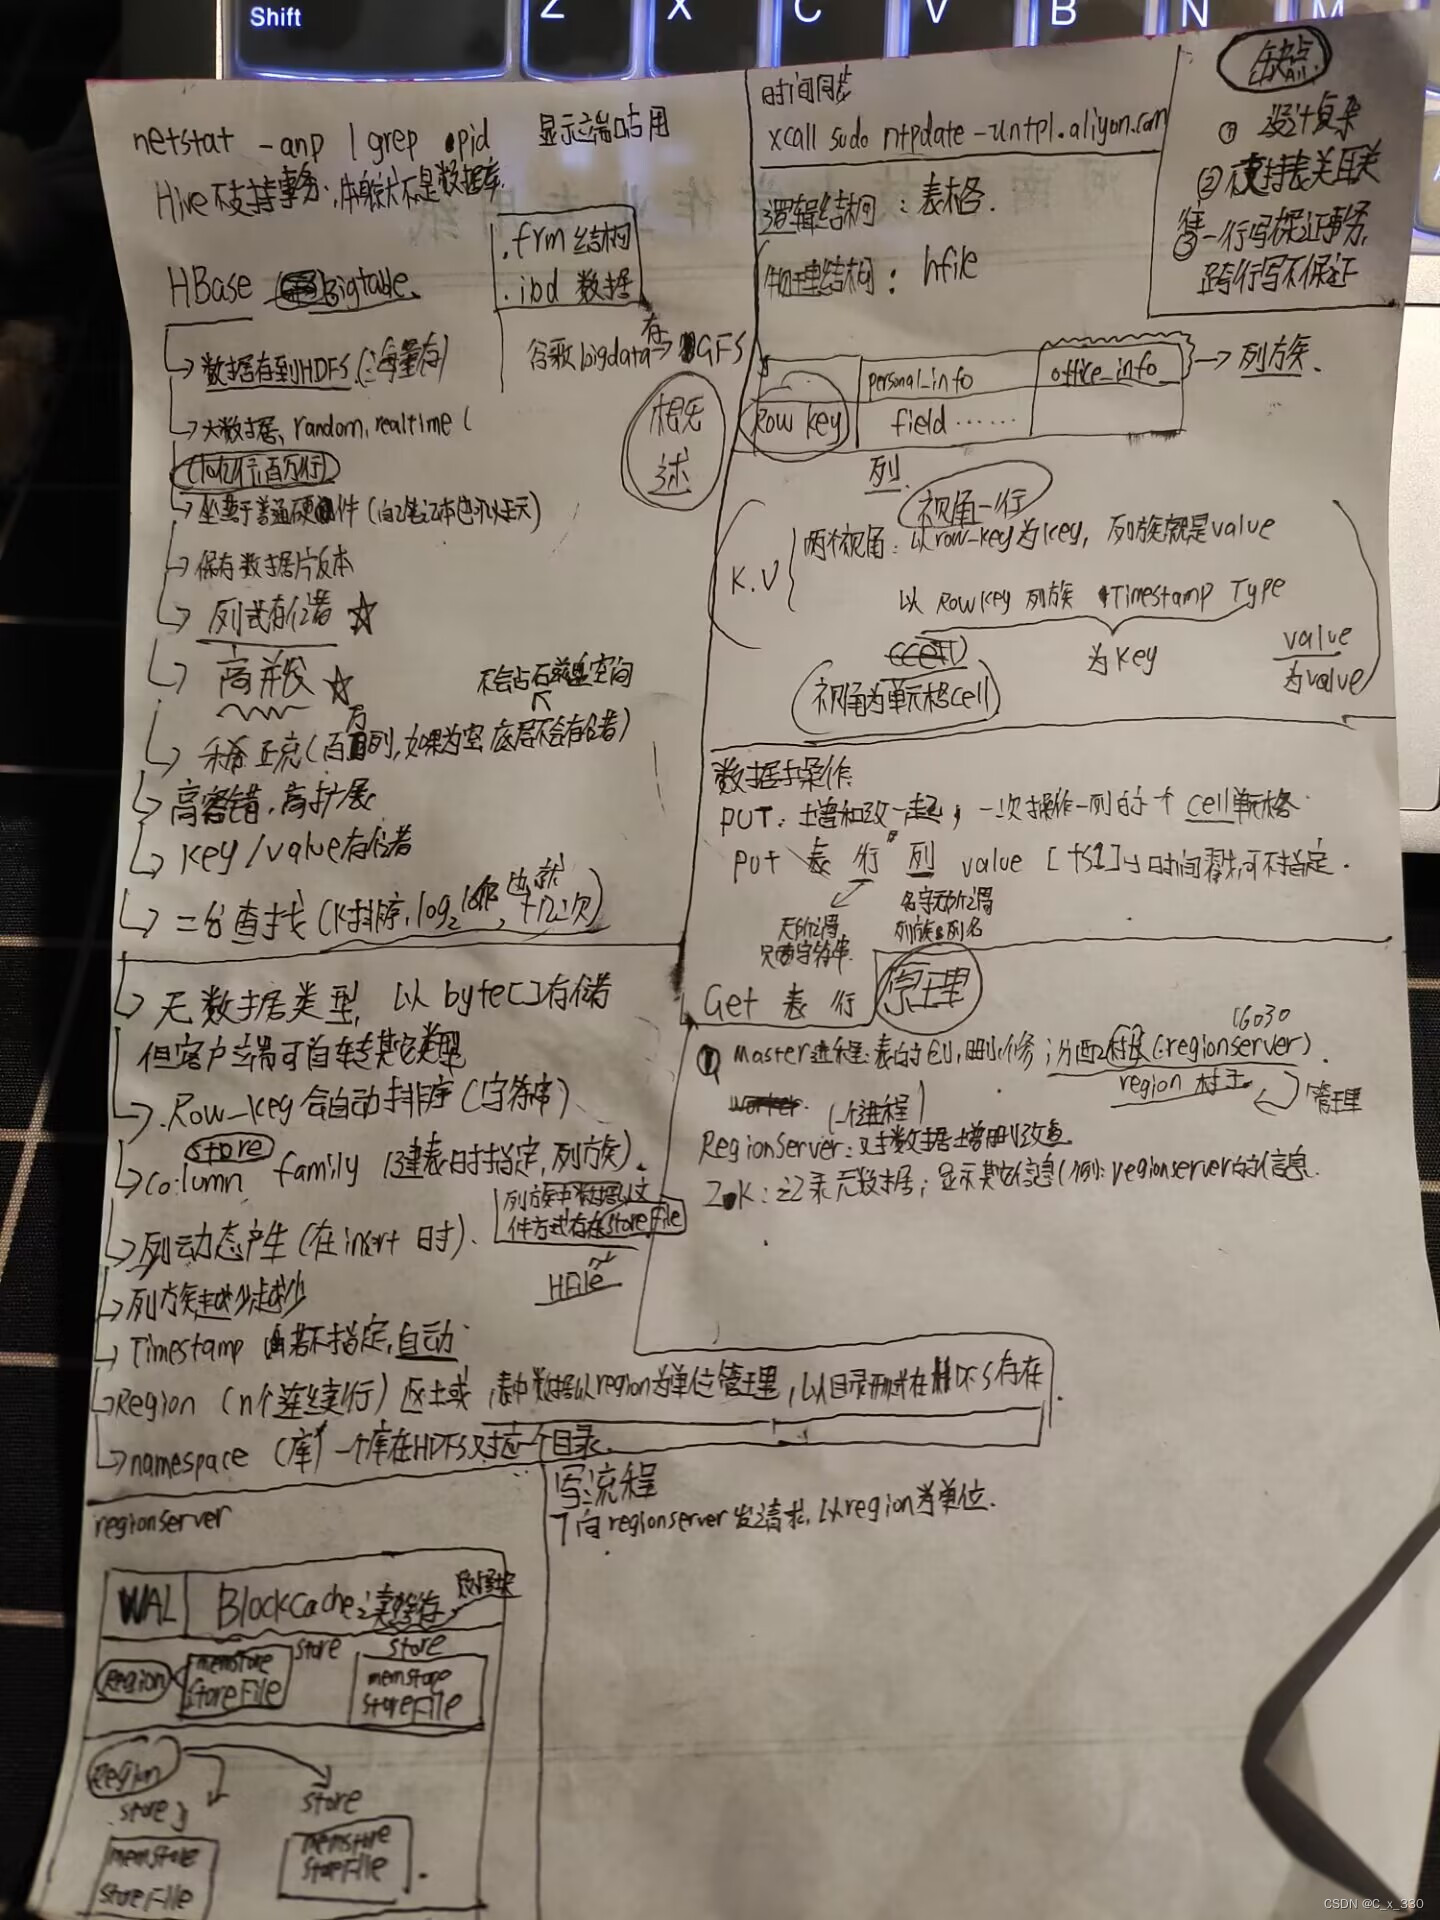 Shift
Z
X
C
V
B
N
M
netstat -anp | grep pid 显示端口占用
Hive不支持事务,本身就不是数据库.
.frm 结构
.ibd 数据
HBase Bigtable.
谷歌bigdata 存→ GFS
概述
数据存到HDFS (海量存)
大数据, random, realtime (
(10亿行,百万行)
坐落于普通硬件 (自己笔记本也可以玩)
保存数据片版本
列式存储 ☆
高并发 ☆
不会占石磁盘空间
稀疏 (百万列,如果为空,底层不会存储)
高容错,高扩展
key/value存储
二分查找 (K排序, log2 10亿, 也就十几次)
无数据类型, 以byte[]存储
但客户端可自转其它类型
Row_Key会自动排序 (字符串)
store
column family (建表时指定,列族).
列族中数据以文
件方式存在storeFile
HFile
列动态产生 (在insert 时).
列族越少越少
Timestamp 若不指定,自动
Region (n个连续行) 区土或, 表中数据以region为单位管理, 以目录形式在HDFS存在.
namespace (库) 一个库在HDFS对应一个目录.
regionserver
WAL
BlockCache 读缓存
Region
memstore
storeFile
store
store
memstore
storeFile
Region
store
store
memstore
storeFile
memstore
storeFile
写流程
向regionserver发请求,以region为单位.
时间同步
xcall sudo ntpdate -u ntp1.aliyon.com
逻辑结构 : 表格.
物理结构 : hfile
缺点
① 设计复杂
② 不支持表关联
③ 一行写保证事务,
跨行写不保证
personal_info
office_info
→ 列族.
Row key
field ······
列.
视角一行
K.V
两个视角: 以row-key为key, 列族就是value
以 RowKey 列族 Timestamp Type
为key
value
为value
视角为单元格cell
数据操作
PUT: 增和改一起, 一次操作一列的一个 cell单元格.
put 表 行 列 value [ts1]→时间戳,可不指定.
无所谓
只要字符串
名字无所谓
列族&列名
Get 表 行
原理
① Master进程: 表的创,删,修;分配对接(regionserver).
16030
region 对于
管理
(一个进程)
RegionServer: 对数据增删改查
ZK: 记录元数据; 显示其它信息(例: regionserver的信息.
CSDN @C_x_330